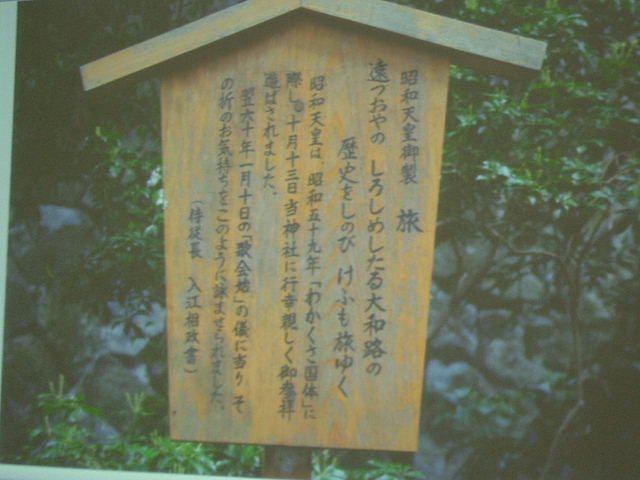 昭和天皇御製　旅
遠つおやの　しろしめしたる大和路の
歴史をしのび　けふも旅ゆく
昭和天皇は、昭和五十九年「わかくさ国体」に
際し、十月十三日当神社に行幸親しく御参拝
遊ばされました。
翌六十年一月十日の「歌会始」の儀に当り　そ
の折のお気持ちをこのように詠ませられました。
（侍従長　入江相政書）